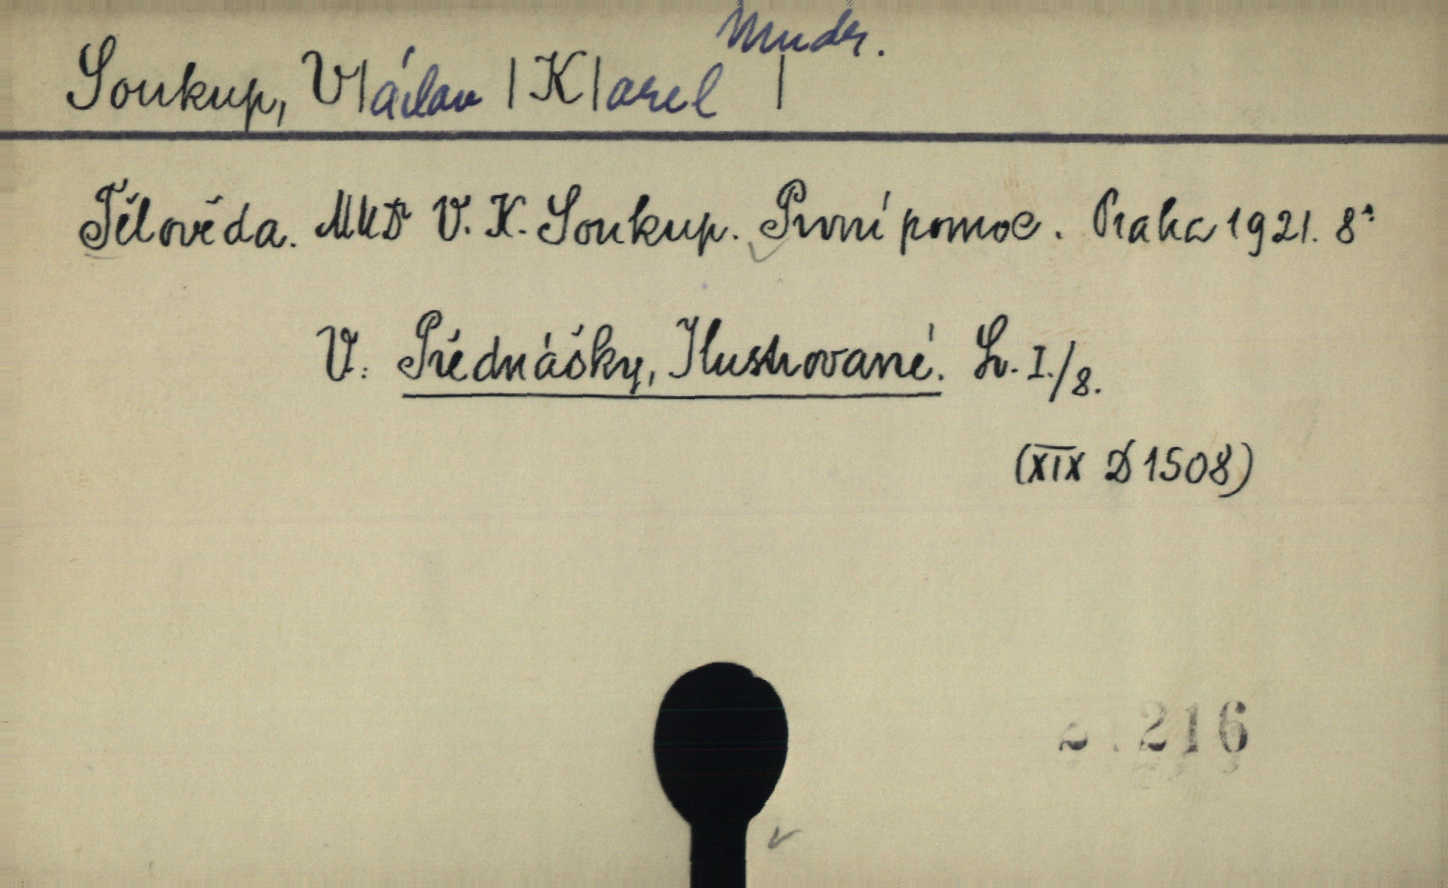 Mudr.
Soukup, V|áclav | K|arel |
Tělověda. MUD V. K. Soukup. První pomoc. Praha 1921. 8°
V: Přednášky, Ilustrované. Sv. I./8.
(XIX D 1508)
216